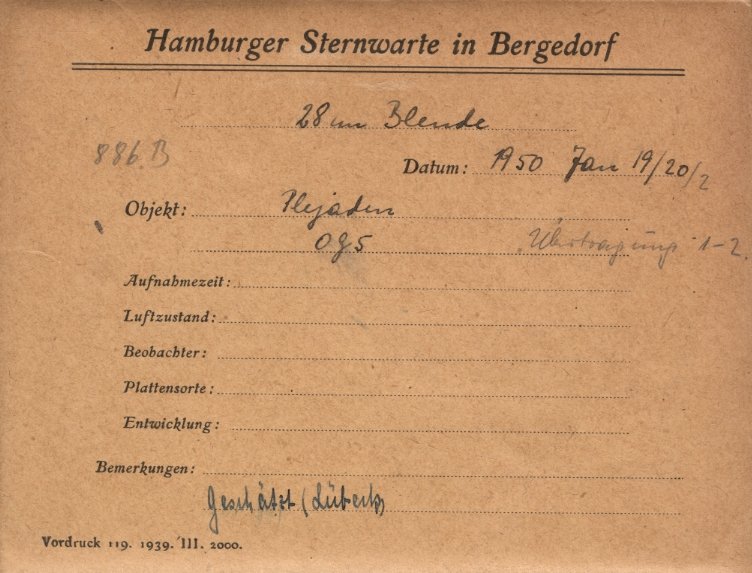 Hamburger Sternwarte in Bergedorf
28 cm Blende
886.B
Datum: 1950 Jan 19/20/2
Objekt: Plejaden
OG5 Übertragung 1-2.
Aufnahmezeit:
Luftzustand:
Beobachter:
Plattensorte:
Entwicklung:
Bemerkungen:
Geschätzt (Lübeck)
Vordruck 119. 1939. III. 2000.